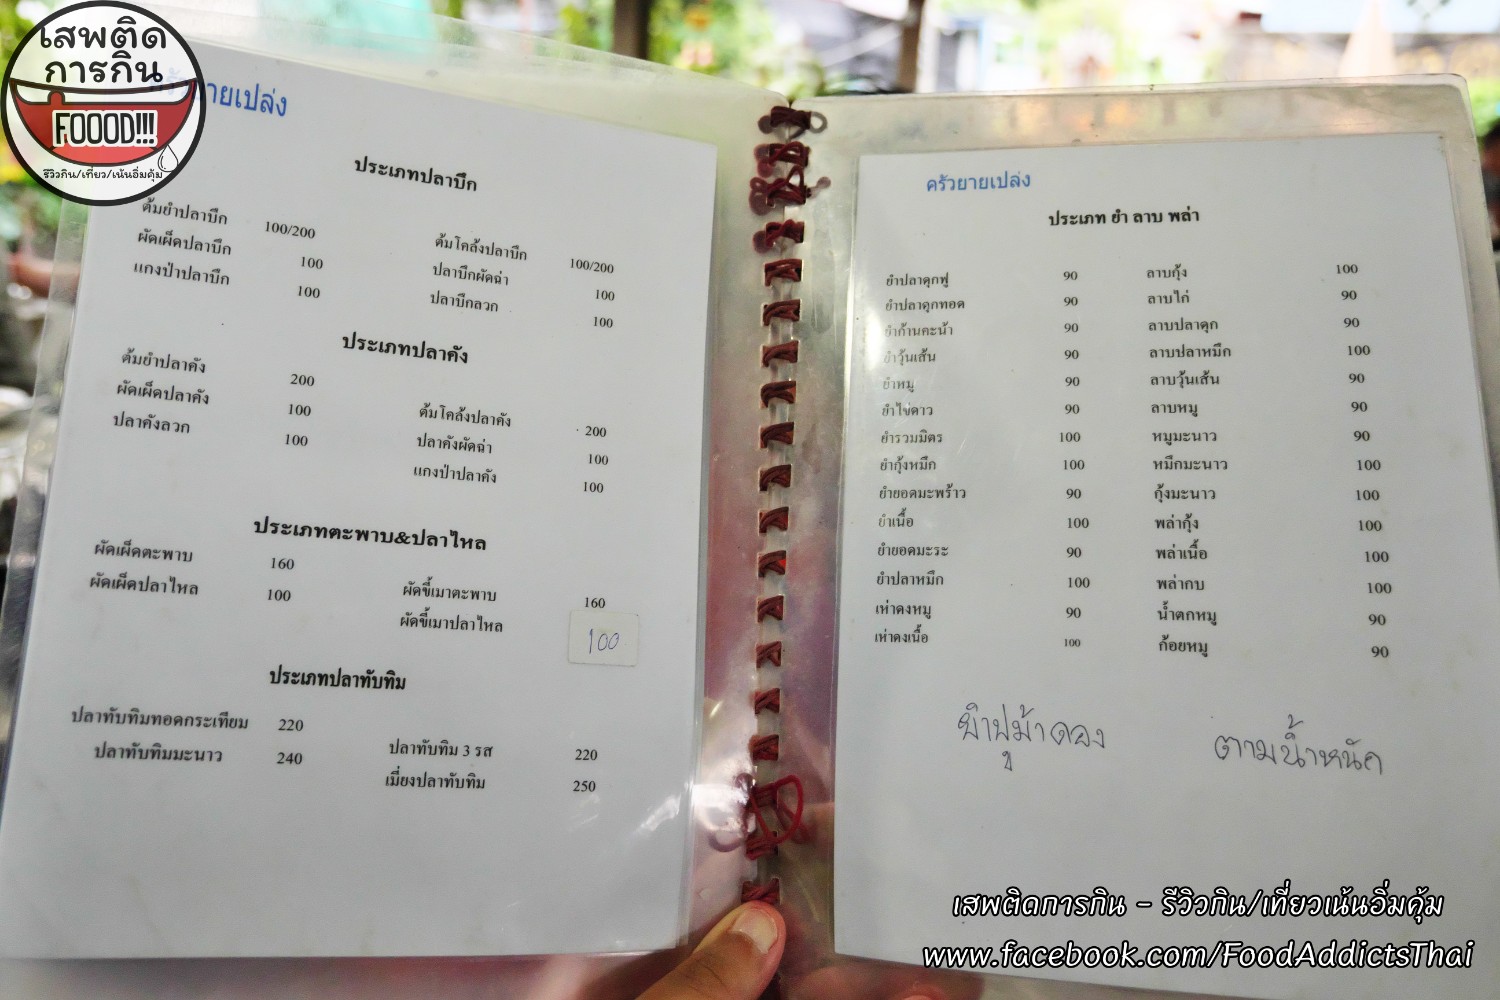 เสพติด
การกิน
FOOOD!!!
รีวิวกิน/เที่ยว/เน้นอิ่มคุ้ม
ยายเปล่ง
ประเภทปลาบึก
ต้มยำปลาบึก 100/200 ต้มโคล้งปลาบึก 100/200
ผัดเผ็ดปลาบึก 100 ปลาบึกผัดฉ่า 100
แกงป่าปลาบึก 100 ปลาบึกลวก 100
ประเภทปลาคัง
ต้มยำปลาคัง 200 ต้มโคล้งปลาคัง 200
ผัดเผ็ดปลาคัง 100 ปลาคังผัดฉ่า 100
ปลาคังลวก 100 แกงป่าปลาคัง 100
ประเภทตะพาบ&ปลาไหล
ผัดเผ็ดตะพาบ 160 ผัดขี้เมาตะพาบ 160
ผัดเผ็ดปลาไหล 100 ผัดขี้เมาปลาไหล 100
ประเภทปลาทับทิม
ปลาทับทิมทอดกระเทียม 220 ปลาทับทิม 3 รส 220
ปลาทับทิมมะนาว 240 เมี่ยงปลาทับทิม 250
ครัวยายเปล่ง
ประเภท ยำ ลาบ พล่า
ยำปลาดุกฟู 90 ลาบกุ้ง 100
ยำปลาดุกทอด 90 ลาบไก่ 90
ยำก้านคะน้า 90 ลาบปลาดุก 90
ยำวุ้นเส้น 90 ลาบปลาหมึก 100
ยำหมู 90 ลาบวุ้นเส้น 90
ยำไข่ดาว 90 ลาบหมู 90
ยำรวมมิตร 100 หมูมะนาว 90
ยำกุ้งหมึก 100 หมึกมะนาว 100
ยำยอดมะพร้าว 90 กุ้งมะนาว 100
ยำเนื้อ 100 พล่ากุ้ง 100
ยำยอดมะระ 90 พล่าเนื้อ 100
ยำปลาหมึก 100 พล่ากบ 100
เห่าดงหมู 90 น้ำตกหมู 90
เห่าดงเนื้อ 100 ก้อยหมู 90
ยำปูม้าดอง ตามน้ำหนัค
เสพติดการกิน - รีวิวกิน/เที่ยวเน้นอิ่มคุ้ม
www.facebook.com/FoodAddictsThai